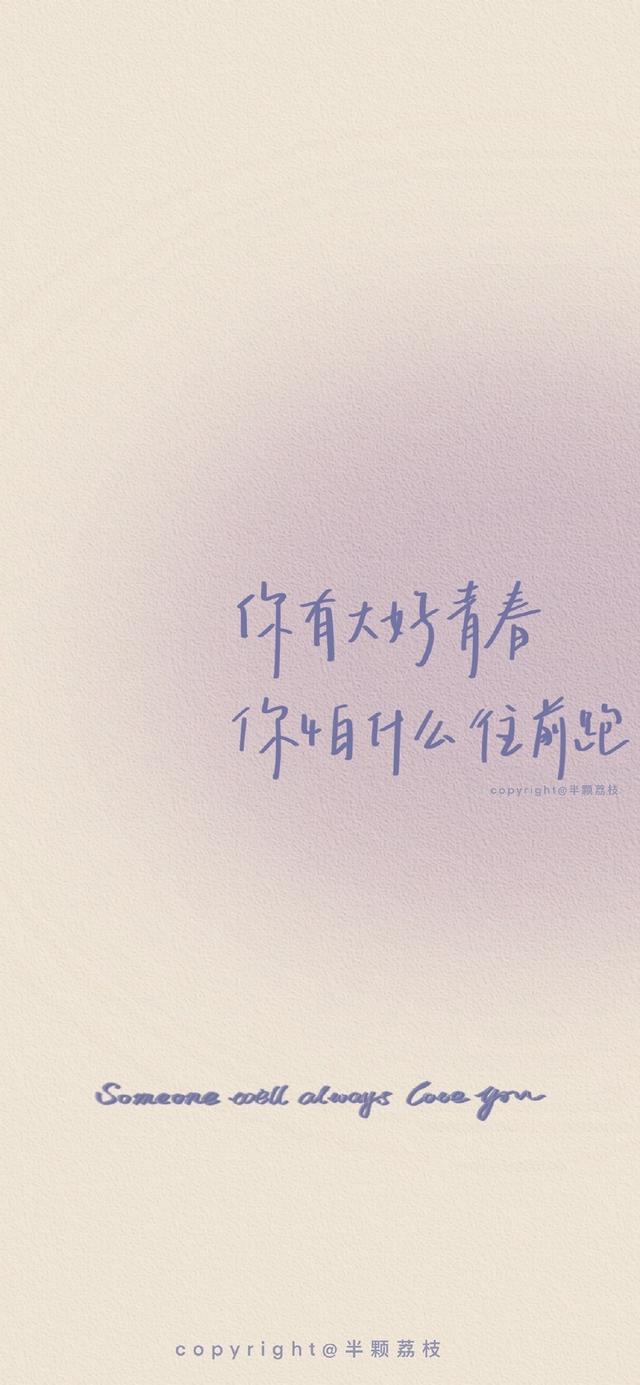 你有大好青春
你怕什么往前跑
copyright@半颗荔枝
Someone will always love you
copyright@半颗荔枝